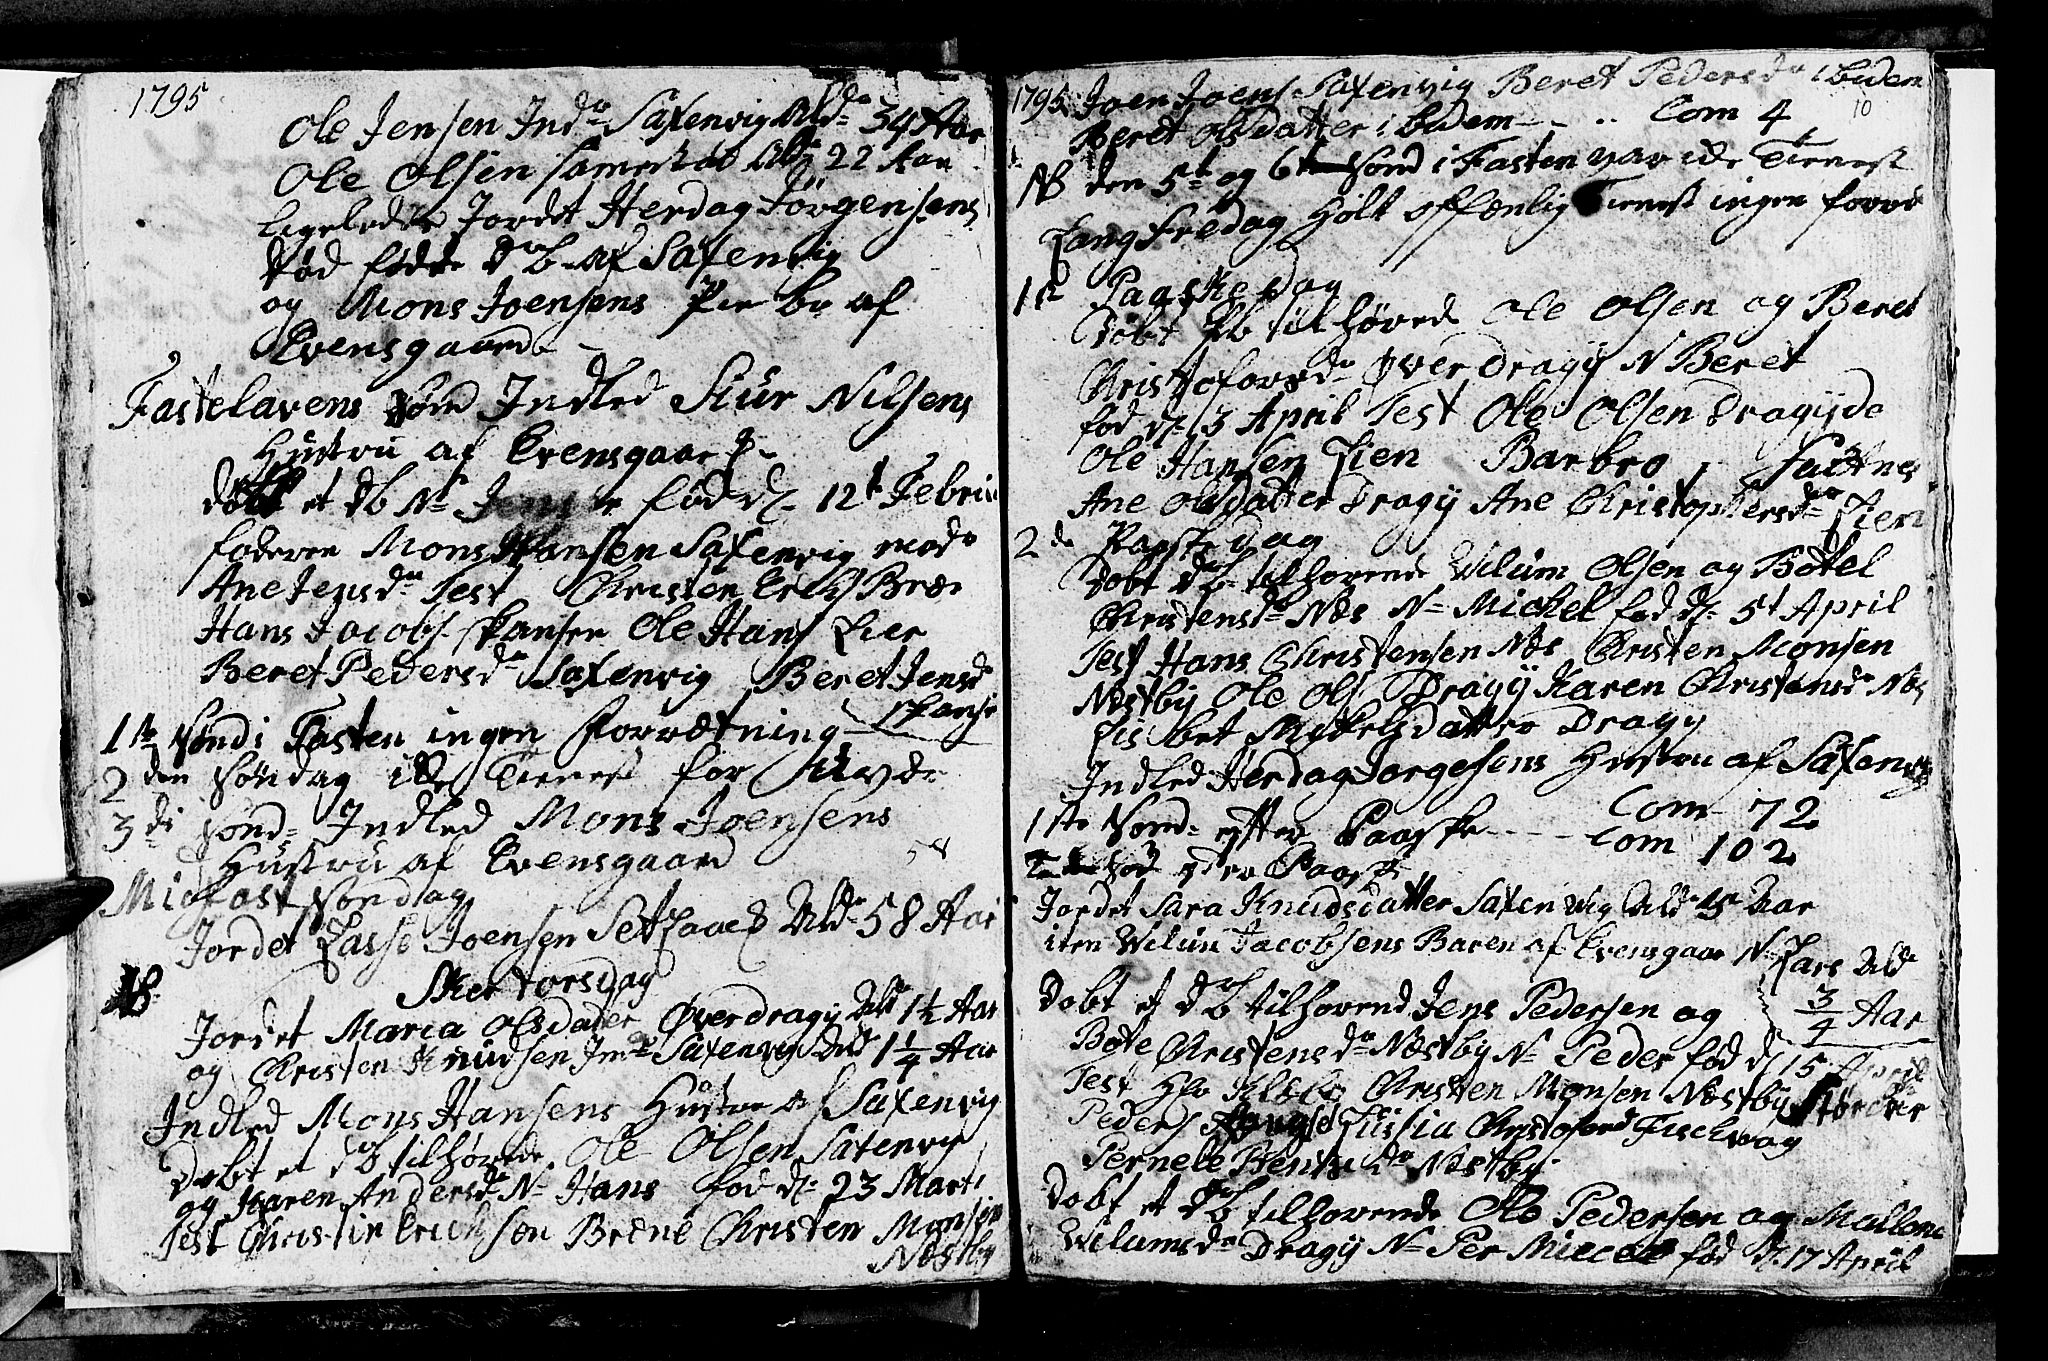 1795
Ole Jensen Indr Saxenvig Ald. 34 Aar
Ole Olsen samestæd Ald 22 Aar
ligeledes Jordet Herdag Jörgensens
död födde db af Saxenvig
og Mons Joensens af
Evensgaard
Fastelavens Sönd Indled Siur Nilsens
Hustru af Evensgaard
döbt et db N. fød d. 12t Febru
foderen Mons Hansen Saxenvig mode
Ane Jensdr Test Christen Erichs
Hans Jacobs. Skansen Ole Hans Lier
Beret Pedersdr Saxenvig Beret Jensd
Skansen
1te Sönd i Fasten ingen Forretning
2den Söndag ike Tienest for Uvær
3de Sönd. Indled Mons Joensens
Hustru af Evensgaard
58
Midfast Söndag
Jordet Lasse Joensen Setsaae Ald. 58 Aar
NB. Skertorsdag
Jordet Maria Olsdater Øverdragÿ Ald 1½ Aar
og Christen Knudsen Indr Saxenvig Ald 1 1/4 Aar
Indled Mons Hansens Hustru af Saxenvig
Döbt et db tilhörende Ole Olsen Saxenvig
og Karen Andersdr N. Hans fød d. 23 Marti
Test Christen Erichsen Christen Monsen
Næstby
1795 Joen Joens Saxenvig Beret Pedersdr ibidem
10
Beret Olsdatter ibidem - - .. Com 4
NB den 5t og 6t Sönd i Fasten var ike Tienest
Langfredag Holt offenlig Tienest ingen forre
1te Paaskedag
Döbt db tilhörende Ole Olsen og Beret
Christoforsdr Øverdragÿ N Beret
fød d. 3 April Test Ole Olsen Dragÿde
Ole Hansen Lien Barbro
Ane Olsdatter Dragÿ Ane Christophersdr Lien
2de Paaskedag
Döbt db tilhörende Wilum Olsen og Botel
Christensdr Næs N. Michel fød d. 5t April
Test Hans Christensen Næs Christen Monsen
Næstby Ole Ols Dragÿ Karen Christensdr Næs
Lisbet Mikelsdatter Dragÿ
Indled Herdag Jorgesens Hustru af Saxenvig
1ste Sönd. efter Paaske - - - - Com 72
2de Sönd efter Paaske Com 102
Jordet Sara Knudsdatter Saxenvig Ald 15 Aar
item Wilum Jacobsens Baren af Evensgaar N. Lars Ald
3/4 Aar
Döbt et db tilhörend Jens Pedersen og
Bote Christensdr Næstby N. Peder fød d 15 April
Test Christen Monsen Næstby
Peders Christoford
Pernele Næstby.
Döbt et db tilhörende Ole Pedersen og Mallene
Wilumsdr Dragÿ N. Per fød d. 17 April